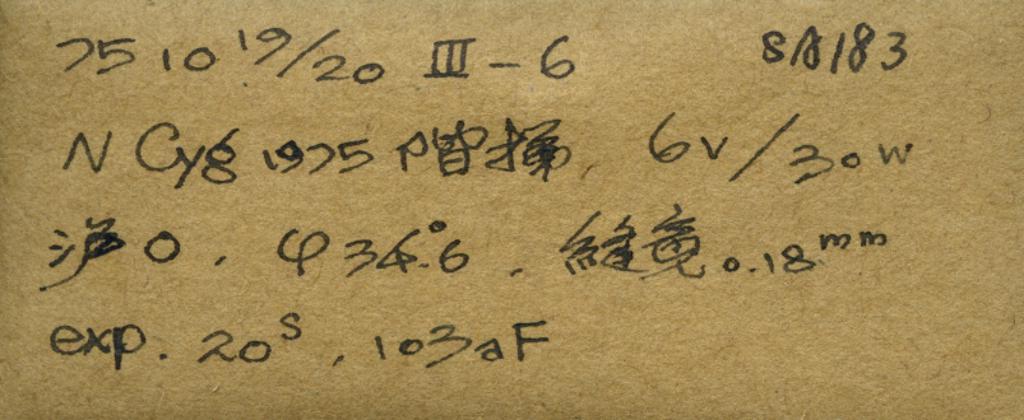 75 10 19/20 III-6 SA183
N Cyg 1975 阶梯 6v/30w
滤0. φ34°.6. 縫宽0.18mm
exp. 20s, 103aF